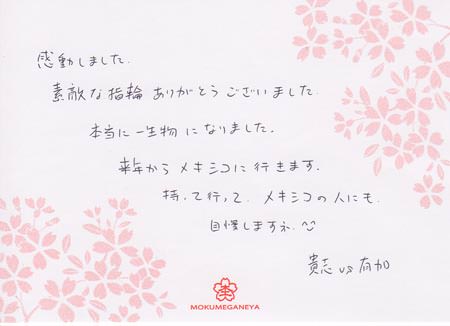 感動しました.
素敵な指輪 ありがとうございました.
本当に一生物になりました.
来年からメキシコに行きます.
持って行って、メキシコの人にも.
自慢しますネ.
貴志 vs 有加
MOKUMEGANEYA